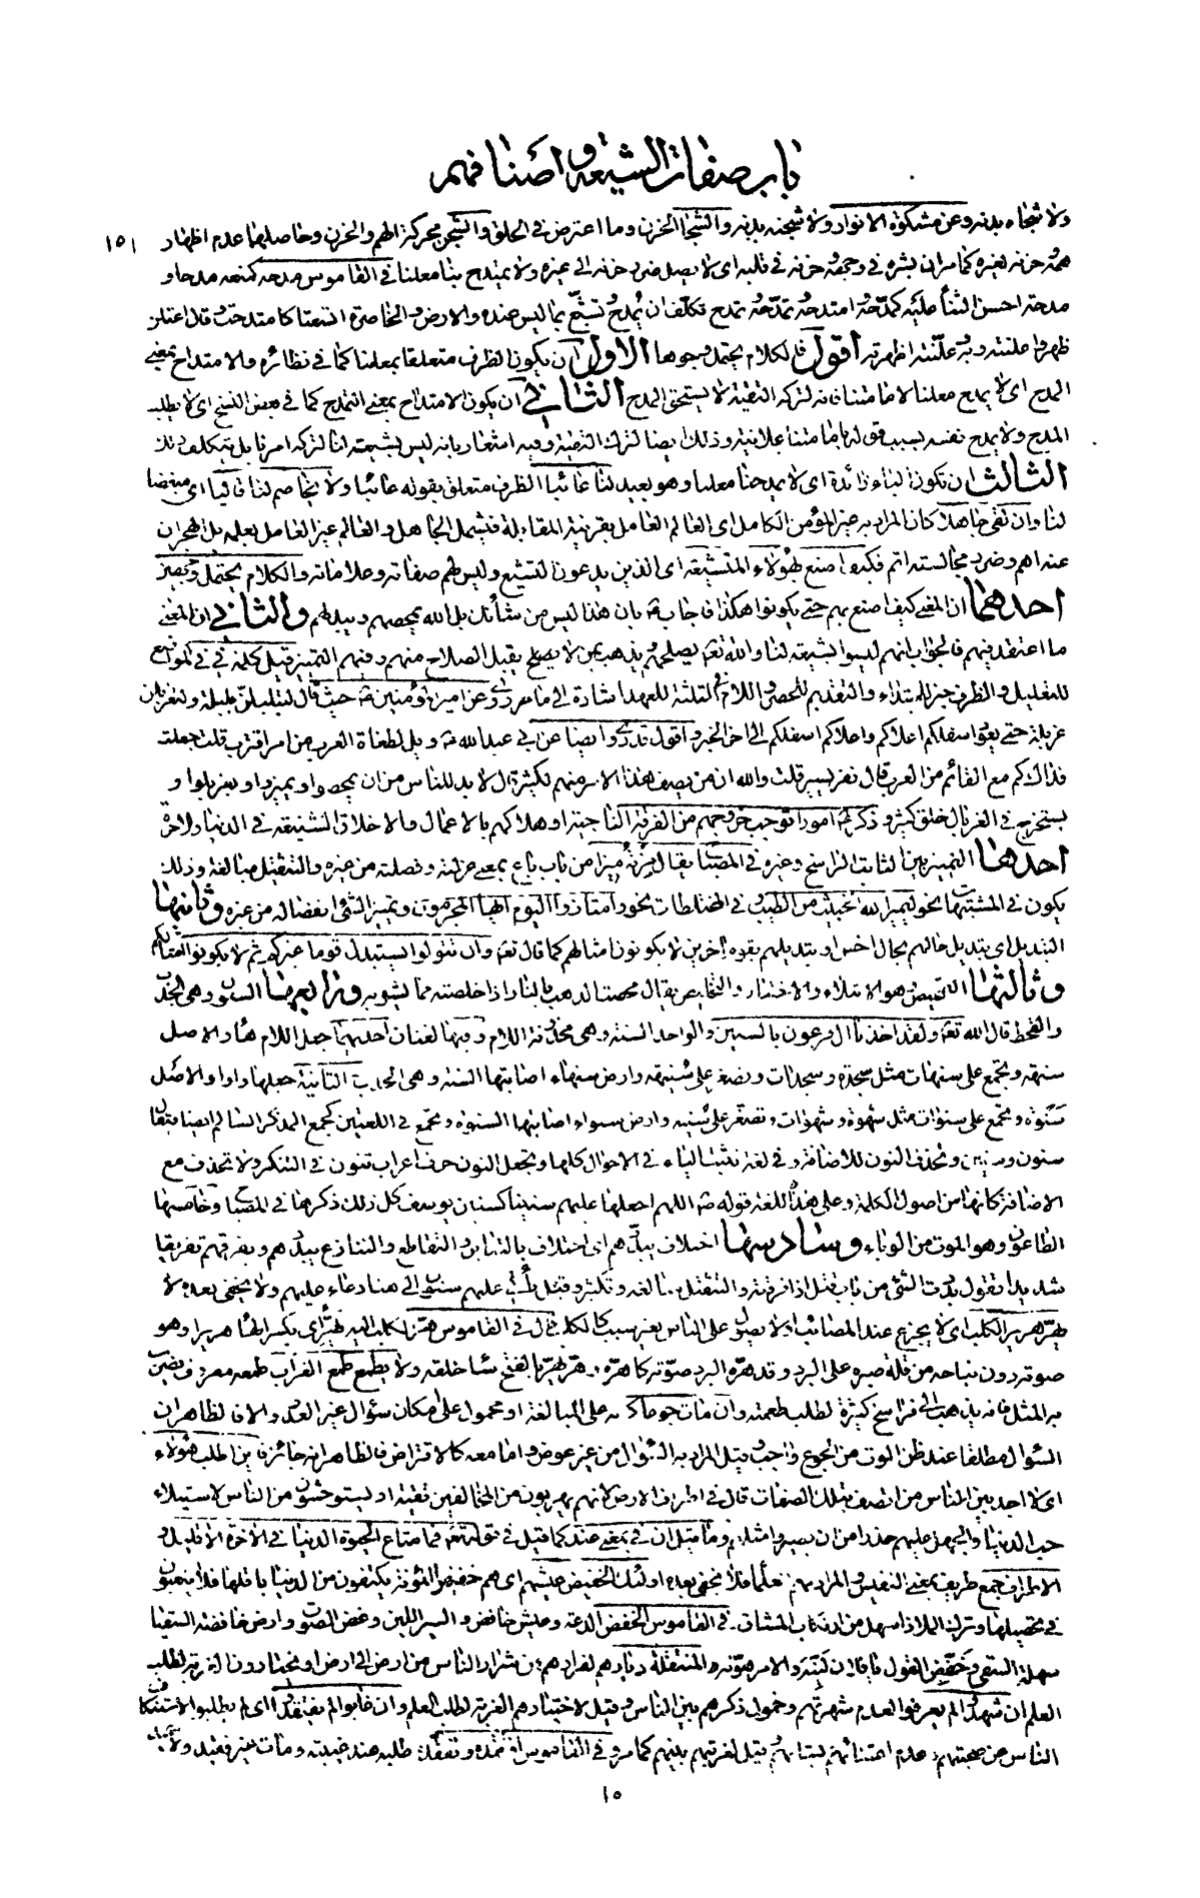 باب صفات الشيعة و اصنافهم
١٥١
ولا شجاه بدنه وعن مشكوة الانوار ولا شجنه بدنه والشجا الحزن وما اعترض في الحلق والشجن محركة الهم والحزن وحاصلهما عدم اظهار
همه وحزنه لغيره كما مر ان بشره في وجهه وحزنه في قلبه اى لا يصل ضرر حزنه الى غيره ولا يمتدح بنا معلنا في القاموس مدحه كمنعه مدحا و
مدحة احسن الثناء عليه كمدّحه وامتدحه وتمدّحه وتمدح تكلّف ان يُمدح وتشبّع بما ليس عنده والارض والخاصرة اتسعتا كامتدحت وقال اعتلن
ظهر واعلنته وبه وعلّنته اظهرته اقول فالكلام يحتمل وجوها الاول ان يكون الظرف متعلقا بمعلنا كما في نظائره والامتداح بمعنى
المدح اى لا يمدح معلنا لامامتنا فانه لتركه التقية لا يستحق المدح الثاني ان يكون الامتداح بمعنى التمدح كما في بعض النسخ اى لا يطلب
المدح ولا يمدح نفسه بسبب قوله بامامتنا علانية وذلك ايضا لترك التقية وفيه اشعار بانه ليس بشيعة لنا لتركه امرنا بل يتكلف ذلك
الثالث ان تكون الباء زائدة اى لا يمدحنا معلنا وهو بعيد لنا عائبا الظرف متعلق بقوله عائبا ولا يخاصم لنا قاليا اى مبغضا
لنا وان لقي جاهلا كان المراد به غير المؤمن الكامل اى العالم العامل بقرينة المقابلة فيشمل الجاهل والعالم غير العامل بعلمه بل الهجران
عنه اهم وضرر مجالسته اتم فكيف اصنع بهؤلاء المتشيعة اى الذين يدعون التشيع وليس لهم صفاته وعلاماته والكلام يحتمل وجهين
احدهما ان المعنى كيف اصنع بهم حتى يكونوا هكذا فاجاب ع بان هذا ليس من شأنك بل الله يمحصهم ويبدلهم والثاني ان المعنى
ما اعتقد فيهم فالجواب انهم ليسوا بشيعة لنا والله تعالى يصلحهم ويذهب بمن لا يصلح يقبل الصلاح منهم وفيهم التمييز قيل كلمة في في المواضع
للتعليل والظرف خبر للمبتداء والتقديم للحصر واللام في الثلثة للعهد اشارة الى ما روى عن امير المؤمنين ع حيث قال لتبلبلن بلبلة ولتغربلن
غربلة حتى يعود اسفلكم اعلاكم واعلاكم اسفلكم الى اخر الخبر واقول قد روى ايضا عن ابي عبد الله ع ويل لطغاة العرب من امر اقترب قلت جعلت
فداك كم مع القائم من العرب قال نفر يسير قلت والله ان من يصف هذا الامر منهم لكثير قال لا بد للناس من ان يمحصوا ويميزوا ويغربلوا و
يستخرج في الغربال خلق كثير وذكر لهم امورا توجب خروجهم من الفرقة الناجية او هلاكهم بالاعمال والاخلاق الشنيعة في الدنيا والاخرة
احدها التمييز بين الثابت الراسخ وغيره في المصباح يقال مزته ميزا من باب باع بمعنى عزلته وفصلته من غيره والتثقيل مبالغة وذلك
يكون في المشتبهات نحو ليميز الله الخبيث من الطيب وفي المختلطات نحو وامتازوا اليوم ايها المجرمون وتميز الشئ انفصاله من غيره وثانيها
التبديل اى تبديل حالهم بحال اخس او تبديلهم بقوم آخرين لا يكونون امثالهم كما قال تعالى وان تتولوا يستبدل قوما غيركم ثم لا يكونوا امثالكم
وثالثها التمحيص وهو الابتلاء والاختبار والتخليص يقال محصت الذهب بالنار اذا خلصته مما يشوبه ورابعها السنون وهي الجدب
والقحط قال الله تعالى ولقد اخذنا آل فرعون بالسنين والواحد السنة وهي محذوفة اللام وفيها لغتان احديهما جعل اللام هاء والاصل
سنهة وتجمع على سنهات مثل سجدة وسجدات وتصغر على سنيهة وارض سنهاء اصابتها السنة وهي الجدب والثانية جعلها واوا والاصل
سنوة وتجمع على سنوات مثل شهوة وشهوات وتصغر على سنية وارض سنواء اصابتها السنوة وتجمع في اللغتين كجمع المذكر السالم ايضا فيقال
سنون وسنين وتحذف النون للاضافة وفي لغة تثبت الياء في الاحوال كلها وتجعل النون حرف اعراب تنون في التنكير ولا تحذف مع
الاضافة كانها من اصول الكلمة وعلى هذه اللغة قوله ص اللهم اجعلها عليهم سنينا كسنين يوسف كل ذلك ذكرها في المصباح وخامسها
الطاعون وهو الموت من الوباء وسادسها اختلاف يبددهم اى اختلاف بالتدابر والتقاطع والتنازع يبددهم ويفرقهم تفريقا
شديدا تقول بددت الشئ من باب قتل اذا فرقته والتثقيل مبالغة وتكثير وقيل تأتي عليهم سنون الى هنا دعاء عليهم ولا يخفى بعده لا
يهر هرير الكلب اى لا يجزع عند المصائب او لا يصول على الناس بغير سبب كالكلب قال في القاموس هر الكلب اليه يهر اى بكسر الهاء هريرا وهو
صوته دون نباحه من قلة صبره على البرد وقد هره البرد صوته كاهره وهر يهر بالفتح ساء خلقه ولا يطمع طمع الغراب طمعه معروف يضرب
به المثل فانه يذهب الى فراسخ كثيرة لطلب طعمته وان مات جوعا كانه على المبالغة او محمول على امكان سؤال غير العدو والا فالظاهر ان
السؤال مطلقا عند ظن الموت من الجوع واجب وقيل المراد به السؤال من غير عوض واما معه كالاقتراض فالظاهر انه جائز فاين اطلب هؤلاء
اى لا اجد بين الناس من اتصف بتلك الصفات قال في اطراف الارض لانهم يهربون من المخالفين تقية او يستوحشون من الناس لاستيلاء
حب الدنيا والجهل عليهم حذرا من ان يصيروا مثلهم وما قيل ان في بمعنى عند كما قيل في قوله تعالى فما متاع الحيوة الدنيا في الآخرة الا قليل و
الاطراف جمع طريف بمعنى النفيس والمراد بهم العلماء فلا يخفى بعده اولئك الخفيض عيشهم اى هم خفيفو المؤنة يكتفون من الدنيا باقلها فلا يتعبون
في تحصيلها وترك الملاذ اسهل من ارتكاب المشاق في القاموس الخفض الدعة وعيش خافض والسير اللين وغض الصوت وارض خافضة السقيا
سهلة السقي وخفض القول يا فلان لينه والامر هونه والمنتقلة ديارهم لفرارهم من شرار الناس من ارض الى ارض او يختارون الغربة لطلب
العلم ان شهدوا لم يعرفوا لعدم شهرتهم وخمول ذكرهم بين الناس وقيل لاختيارهم الغربة لطلب العلم وان غابوا لم يفتقدوا اى لم يطلبوا لاستنكاف
الناس عن صحبتهم وعدم اعتنائهم بشانهم وقيل لغربتهم بينهم كما مر وفي القاموس افتقده وتفقده طلبه عند غيبته ومات غير فقيد ولا حميد
١٥